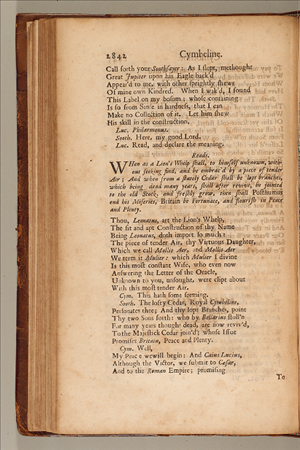 2842 Cymbeline.
Call forth your Soothsayer: As I slept, methought
Great Jupiter upon his Eagle back'd
Appear'd to me, with other sprightly shews
Of mine own Kindred. When I wak'd, I found
This Label on my bosom; whose containing
Is so from Sense in hardness, that I can
Make no Collection of it. Let him shew
His skill in the construction.
Luc. Philarmonus.
Sooth. Here, my good Lord.
Luc. Read, and declare the meaning.
Reads.
WHen as a Lion's Whelp shall, to himself unknown, with-
out seeking find, and be embrac'd by a piece of tender
Air; And when from a stately Cedar shall be lopt branches,
which being dead many years, shall after revive, be jointed
to the old Stock, and freshly grow, then shall Posthumus
end his Miseries, Britain be Fortunate, and flourish in Peace
and Plenty.
Thou, Leonatus, art the Lion's Whelp,
The fit and apt Construction of thy Name
Being Leonatus, doth import so much:
The piece of tender Air, thy Virtuous Daughter,
Which we call Mollis Aer, and Mollis Aer
We term it Mulier: which Mulier I divine
Is this most constant Wife, who even now
Answering the Letter of the Oracle,
Unknown to you, unsought, were clipt about
With this most tender Air.
Cym. This hath some seeming.
Sooth. The lofty Cedar, Royal Cymbeline,
Personates thee; And thy lopt Branches, point
Thy two Sons forth: who by Bellarius stoll'n
For many years thought dead, are now reviv'd,
To the Majestick Cedar join'd; whose Issue
Promises Britain, Peace and Plenty.
Cym. Well,
My Peace we will begin: And Caius Lucius,
Although the Victor, we submit to Cæsar,
And to the Roman Empire; promising
To